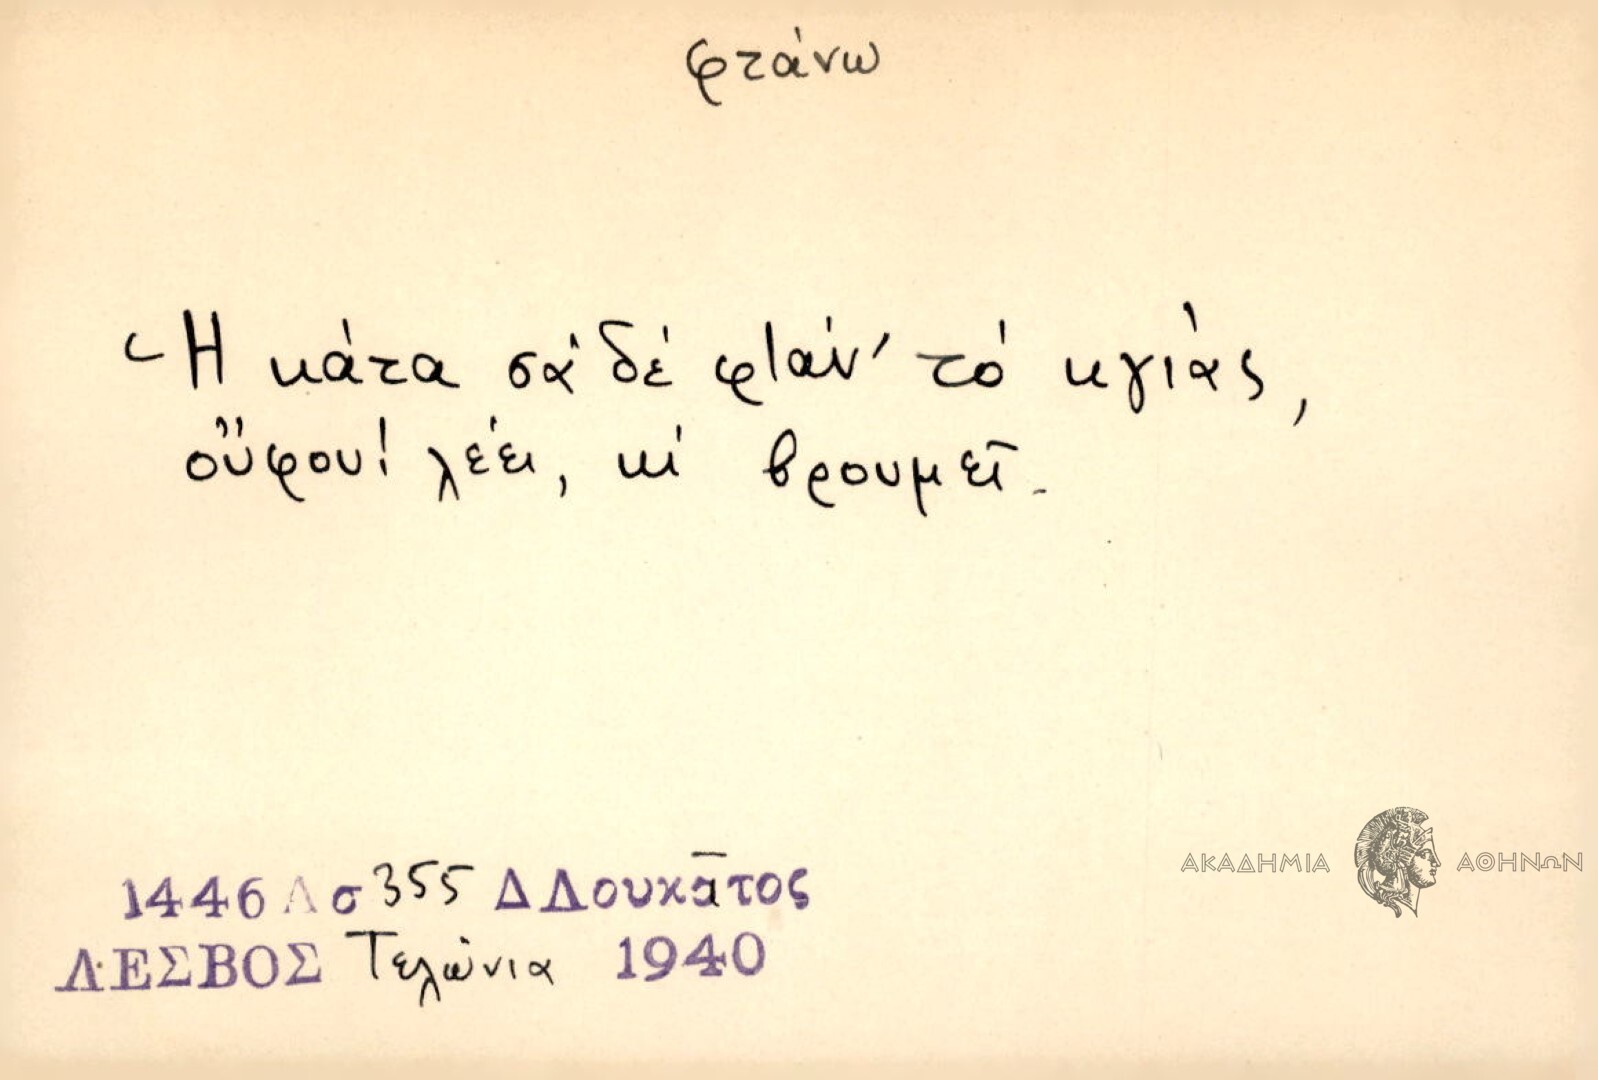 φτάνω
Ἡ κάτα σὰ δὲ φτάν' τὸ κγιὰς,
οὔφου! λέει, κὶ βρουμεῖ.
1446 Λ σ 355 Δ Λουκᾶτος
ΛΕΣΒΟΣ Τελώνια 1940
ΑΚΑΔΗΜΙΑ ΑΘΗΝΩΝ